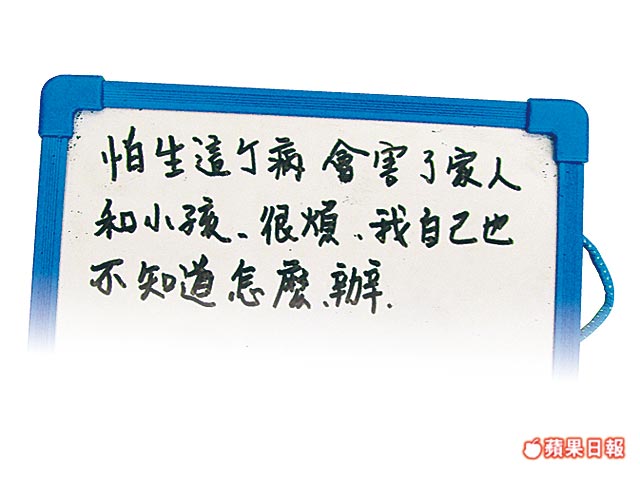 怕生這个病會害了家人
和小孩、很煩、我自己也
不知道怎麼辦.
蘋果日報